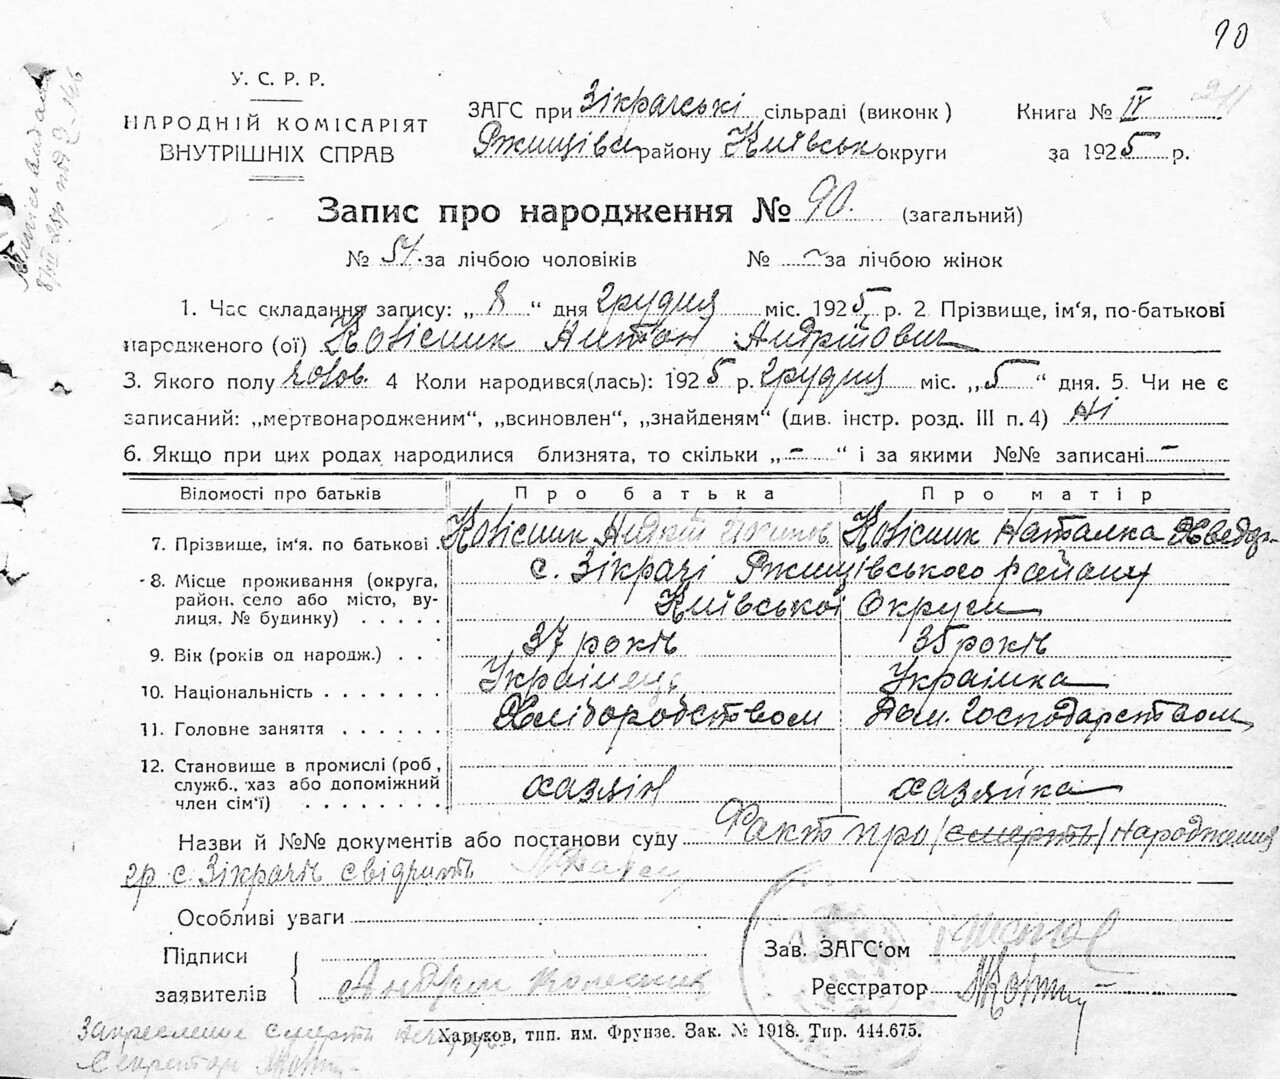 90
У. С. Р. Р.
НАРОДНІЙ КОМІСАРІЯТ
ВНУТРІШНІХ СПРАВ
ЗАГС при Зікрачські сільраді (виконк)
Ржищівськ району Київськ округи
Книга № IV
за 1925 р.
Запис про народження № 90. (загальний)
№ 54. за лічбою чоловіків № – за лічбою жінок
1. Час складання запису: „ 8 “ дня грудня міс. 1925 р. 2 Прізвище, ім'я, по-батькові
народженого (ої) Колісник Антон Андрійович
3. Якого полу чолов. 4 Коли народився(лась): 1925 р. грудня міс. „ 5 “ дня. 5. Чи не є
записаний: „мертвонародженим“, „всиновлен“, „знайденям“ (див. інстр. розд. III п. 4) Ні
6. Якщо при цих родах народилися близнята, то скільки „ – “ і за якими №№ записані –
Відомості про батьків Про батька Про матір
7. Прізвище, ім'я, по батькові Колісник Андрій Колісник Наталка Хведор-
8. Місце проживання (округа, район, село або місто, вулиця, № будинку) с. Зікрачі Ржищівського району
Київської Округи
9. Вік (років од народж.) 37 років 35 років
10. Національність Українець Українка
11. Головне заняття Хліборобством Дом. Господарством
12. Становище в промислі (роб, служб., хаз або допоміжний член сім'ї) хазяїн хазяйка
Назви й №№ документів або постанови суду Факт про (смерть) народження
гр с Зікрачів свідчить
Особливі уваги
Підписи
заявителів Андрій Колісник
Зав. ЗАГС'ом
Реєстратор
Харьков, тип. им. Фрунзе. Зак. № 1918. Тир. 444.675.
Закреслене смерть
Секретар